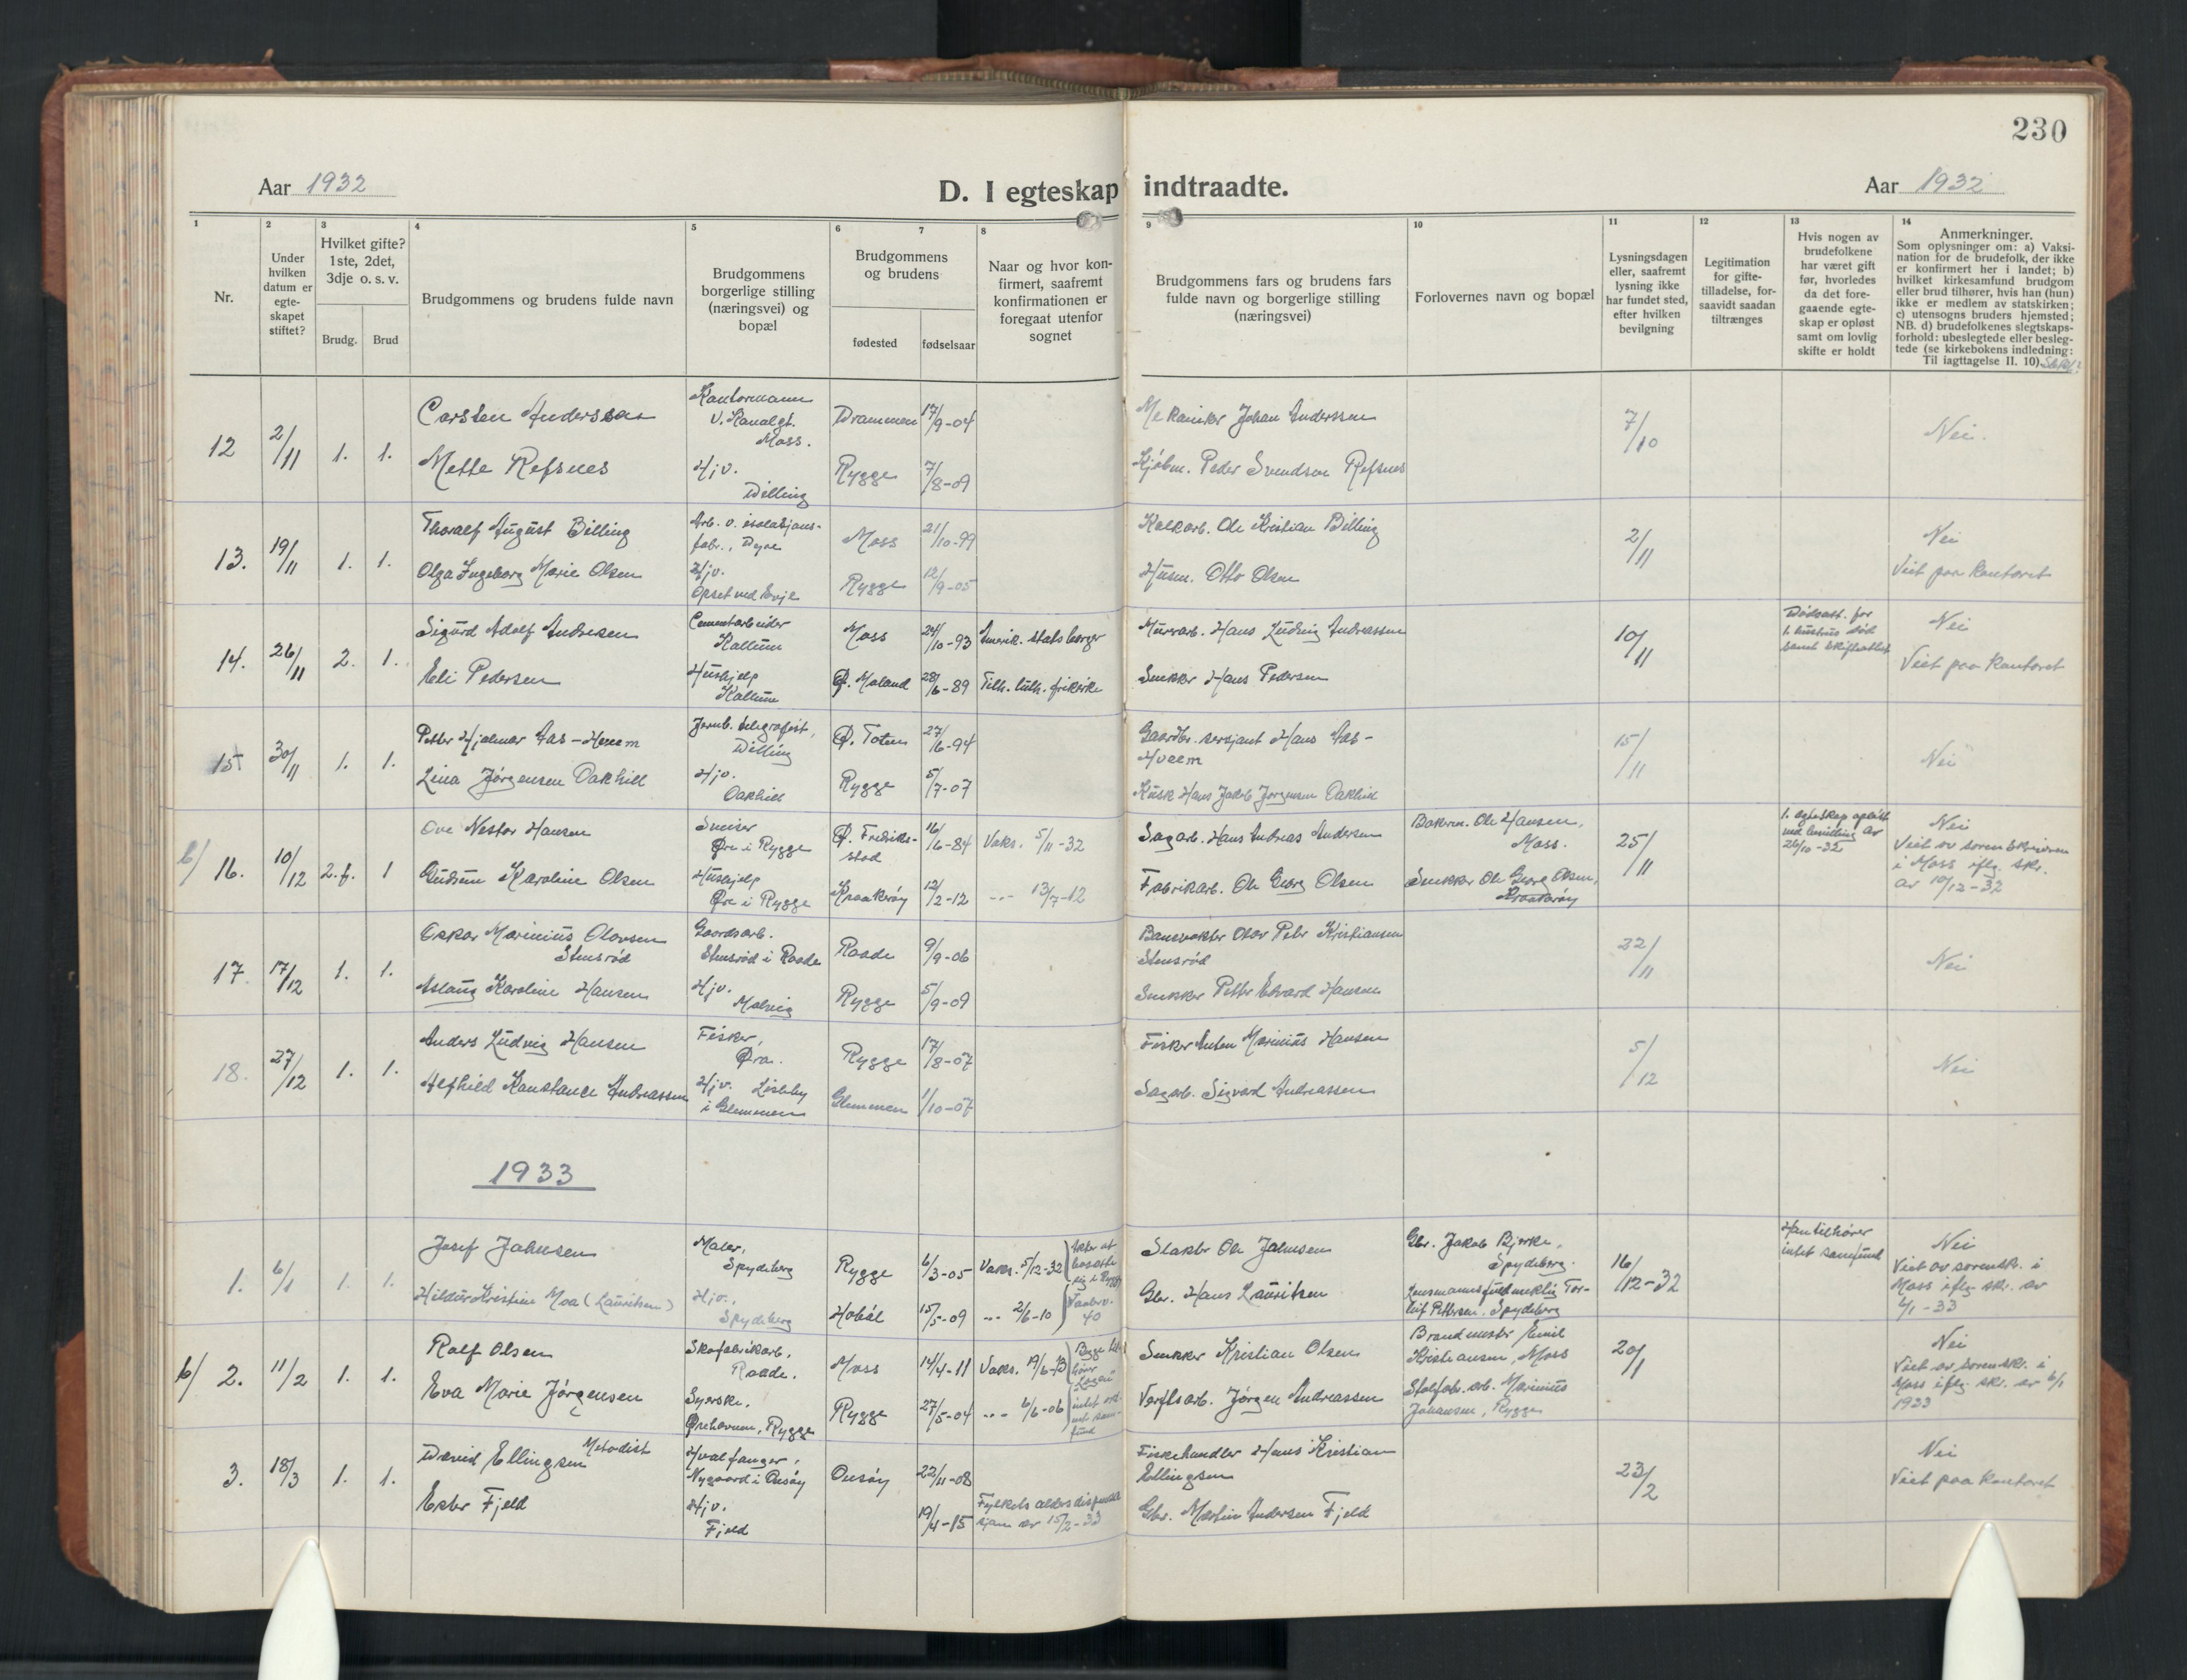 230
Aar 1932
D. I egteskap indtraadte.
Aar 1932
1
2
3
4
5
6
7
8
9
10
11
12
13
14
Nr.
Under
hvilken
datum er
egte-
skapet
stiftet?
Hvilket gifte?
1ste, 2det,
3dje o. s. v.
Brudg.
Brud
Brudgommens og brudens fulde navn
Brudgommens
borgerlige stilling
(næringsvei) og
bopæl
Brudgommens
og brudens
fødested
fødselsaar
Naar og hvor kon-
firmert, saafremt
konfirmationen er
foregaat utenfor
sognet
Brudgommens fars og brudens fars
fulde navn og borgerlige stilling
(næringsvei)
Forlovernes navn og bopæl
Lysningsdagen
eller, saafremt
lysning ikke
har fundet sted,
efter hvilken
bevilgning
Legitimation
for gifte-
tilladelse, for-
saavidt saadan
tiltrænges
Hvis nogen av
brudefolkene
har været gift
før, hvorledes
da det fore-
gaaende egte-
skap er opløst
samt om lovlig
skifte er holdt
Anmerkninger.
Som oplysninger om: a) Vaksi-
nation for de brudefolk, der ikke
er konfirmert her i landet; b)
hvilket kirkesamfund brudgom
eller brud tilhører, hvis han (hun)
ikke er medlem av statskirken;
c) utensogns bruders hjemsted;
NB. d) brudefolkenes slegtskaps-
forhold: ubeslegtede eller besleg-
tede (se kirkebokens indledning:
Til iagttagelse II. 10)
12
2/11
1.
1.
Carsten Anderssen
Kontormann
v. Kanalgt.
Moss.
Drammen
17/9-04
Mekaniker Johan Anderssen
7/10
Nei.
Mette Refsnes
Hjv.
Dilling
Rygge
7/8-09
Kjøbm. Peder Svendsen Refsnes
13.
19/11
1.
1.
Thoralf August Billing
Arb. v. isolasjons-
fabr., Dyre
Moss
21/10-99
Kalkarb. Ole Kristian Billing
2/11
Nei
Olga Ingeborg Marie Olsen
Hjv.
Opset ved Evje
Rygge
12/9-05
Husm. Otto Olsen
Viet paa kontoret
14.
26/11
2.
1.
Sigurd Adolf Andresen
Cementarbeider
Kallum
Moss
24/10-93
Amerik. statsborger
Murarb. Hans Ludvig Andreassen
10/11
Dødsatt. for
1. hustrus død
samt skifteattest
Nei
Eli Pedersen
Hushjelp
Kallum
Ø. Moland
28/6-89
Tilh. luth. frikirke
Snekker Hans Pedersen
Viet paa kontoret
15
30/11
1.
1.
Petter Hjalmar Aas-Hveem
Jernb. telegrafist,
Dilling
Ø. Toten
27/6-94
Gaardbr. sersjant Hans Aas-
Hveem
15/11
Nei
Lina Jørgensen Oakhill
Hjv.
Oakhill
Rygge
5/7-07
Kusk Hans Jakob Jørgensen Oakhill
b/ 16.
10/12
2. f.
1
Ove Nestor Hansen
Snekker
Øre i Rygge
Ø. Fredrik-
stad
16/6-84
Vaks. 5/11-32
Sagarb. Hans Andreas Andersen
Bakerm. Ole Hansen,
Moss.
25/11
1. egteskap opløst
ved bevilling av
26/10-32
Nei
Viet av sorenskriveren
i Moss iflg. skr.
av 10/12-32
Gudrun Karoline Olsen
Hushjelp
Øre i Rygge
Kraakerøy
12/2-12
-"- 13/7-12
Fabrikarb. Ole Georg Olsen
Snekker Ole Georg Olsen,
Kraakerøy
17.
17/12
1.
1.
Oskar Marinius Olavsen
Stensrød
Gaardsarb.
Stensrød i Raade
Raade
9/9-06
Banevokter Olav Peter Kristiansen
Stensrød
22/11
Nei
Aslaug Karoline Hansen
Hjv.
Rygge
5/9-09
Snekker Petter Edvard Hansen
18.
27/12
1.
1.
Anders Ludvig Hansen
Fisker,
Øra.
Rygge
17/8-07
Fisker Anton Marinius Hansen
5/12
Nei
Alfhild Konstance Andreassen
Hjv. Lisleby
i Glemmen
Glemmen
1/10-07
Sagarb. Sigvard Andreassen
1933
1.
6/1
1.
1.
Josef Johnsen
Maler,
Spydeberg
Rygge
6/3-05
Vaks. 5/12-32
Akter at
bosætte
sig i Rygge
Slakter Ole Johnsen
Gbr. Jakob Bjerke,
Spydeberg.
16/12-32
Han tilhører
intet samfund
Nei
Viet av sorensk. i
Moss iflg. skr. av
6/1-33
Hildur Kristine Moa (Lauritsen)
Hjv.,
Spydeberg
Hobøl
15/5-09
-"- 2/6-10
Gbr. Hans Lauritsen
Lensmannsfuldmektig Tor-
leif Pettersen, Spydeberg
b/ 2.
11/2
1.
1.
Rolf Olsen
Skofabrikarb.,
Raade.
Moss
14/4-11
Vaks. 19/6-13
Begge til-
hører
intet ord-
net sam-
fund
Snekker Kristian Olsen
Brandmester Emil
Kristiansen, Moss
20/1
Nei
Viet av sorensk. i
Moss iflg. skr. av 6/1
1933
Eva Marie Jørgensen
Syerske,
Ørehavnen, Rygge
Rygge
27/5-04
-"- 6/6-06
Verftsarb. Jørgen Andreassen
Stolfab. arb. Marinius
Johansen, Rygge
3.
18/3
1.
1.
David Ellingsen Metodist
Hvalfanger,
Nygaard i Onsøy
Onsøy
22/11-08
Fiskehandler Hans Kristian
Ellingsen
23/2
Nei
Viet paa kontoret
Ester Fjeld
Hjv.
Fjeld
19/4-15
Fylkets aldersdispensa
sjon av 15/2-33
Gbr. Martin Andersen Fjeld